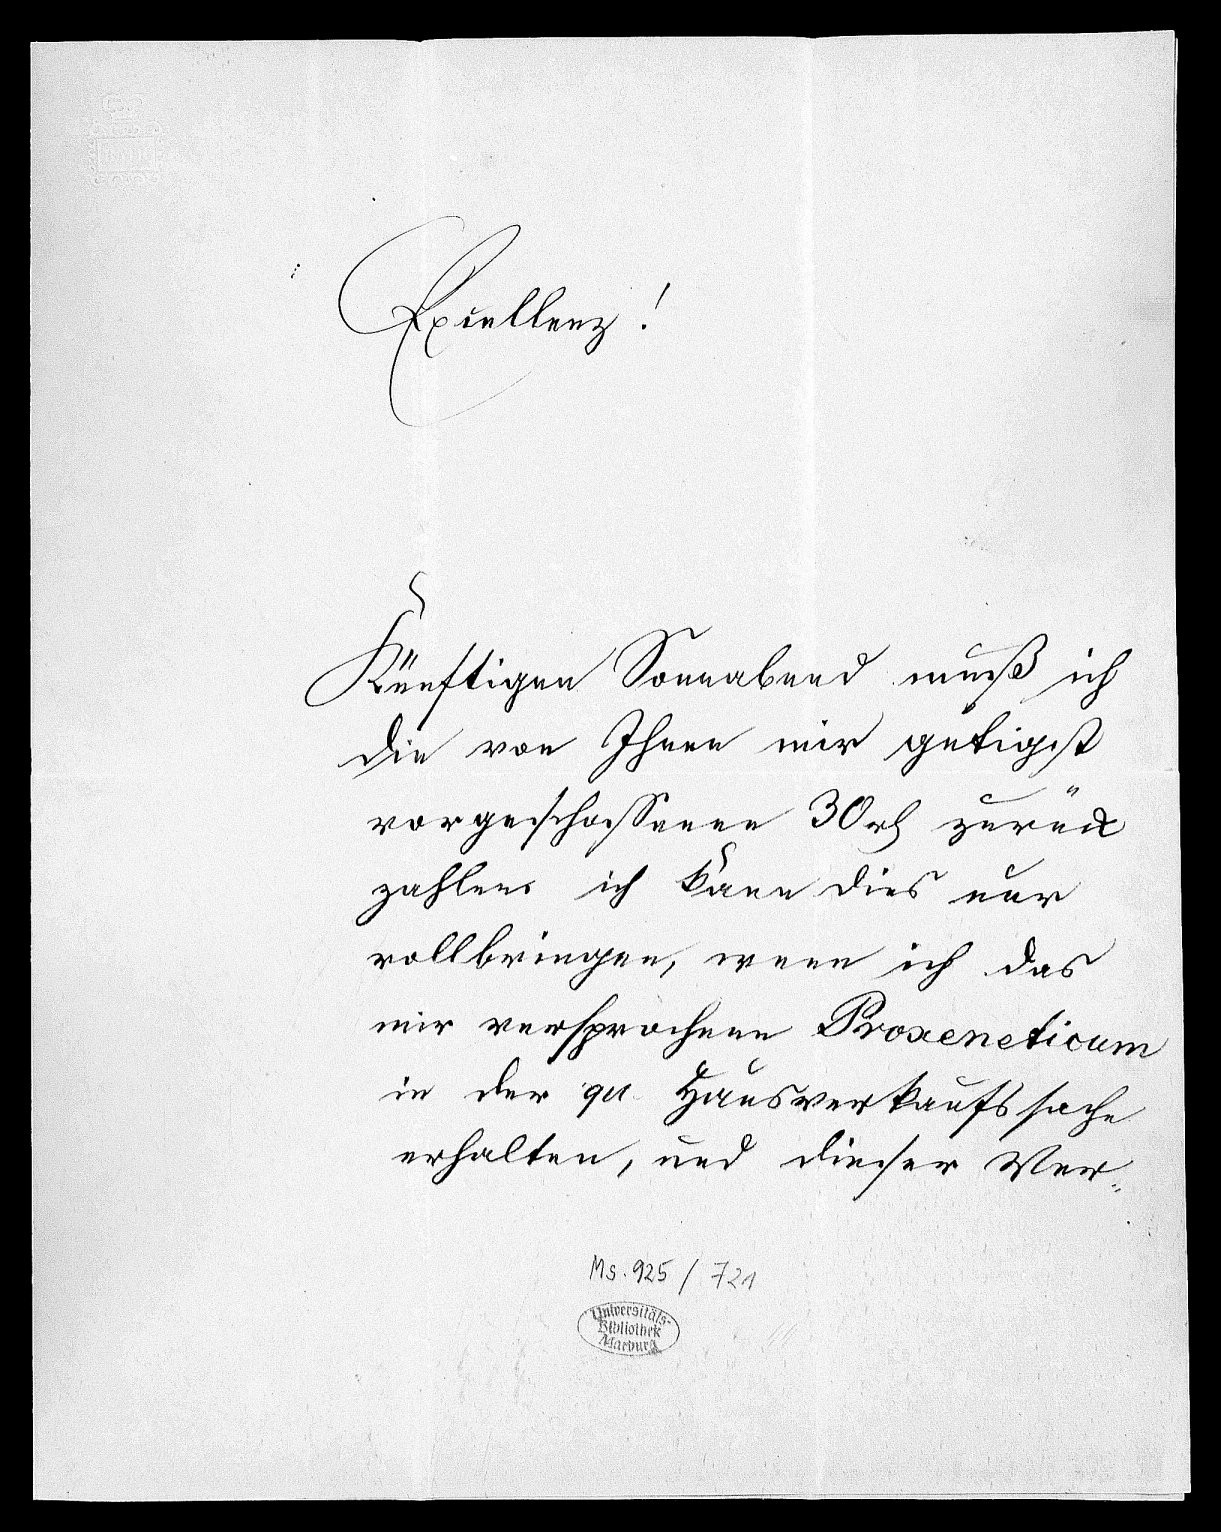 Excellenz!
Künftigen Sonnabend muß ich
die von Ihnen mir gütigst
vorgeschossenen 30 rh zurück
zahlen. ich kann dies nur
vollbringen, wenn ich das
mir versprochene Proxeneticum
in der qu. Hausverkaufssache
erhalten, und dieser Ver-
Ms. 925 / 721
Universitäts-
Bibliothek
Marburg